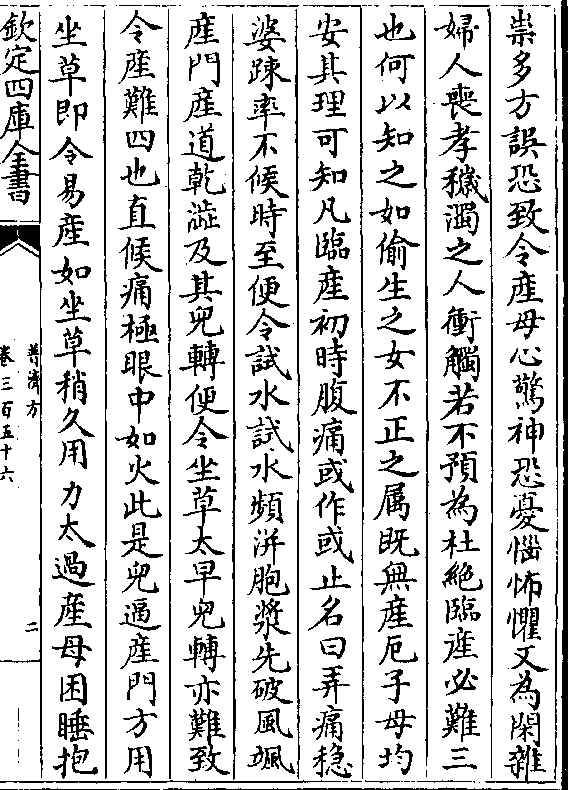 祟多方誤恐致令産母心驚神恐憂惱怖懼又為閑雜
婦人喪孝穢濁之人衝觸若不預為杜絶臨産必難三
也何以知之如偷生之女不正之属既無産厄子母均
安其理可知凡臨産初時腹痛或作或止名曰弄痛稳
婆踈率不候時至便令試水試水頻併胞漿先破風颯
産門産道乾澁及其兒轉便令坐草太早兒轉亦難致
令産難四也直候痛極眼中如火此是兒逼産門方用
坐草即令易産如坐草稍久用力太過産母困睡抱
欽定四庫全書
普濟方
卷三百五十六
二